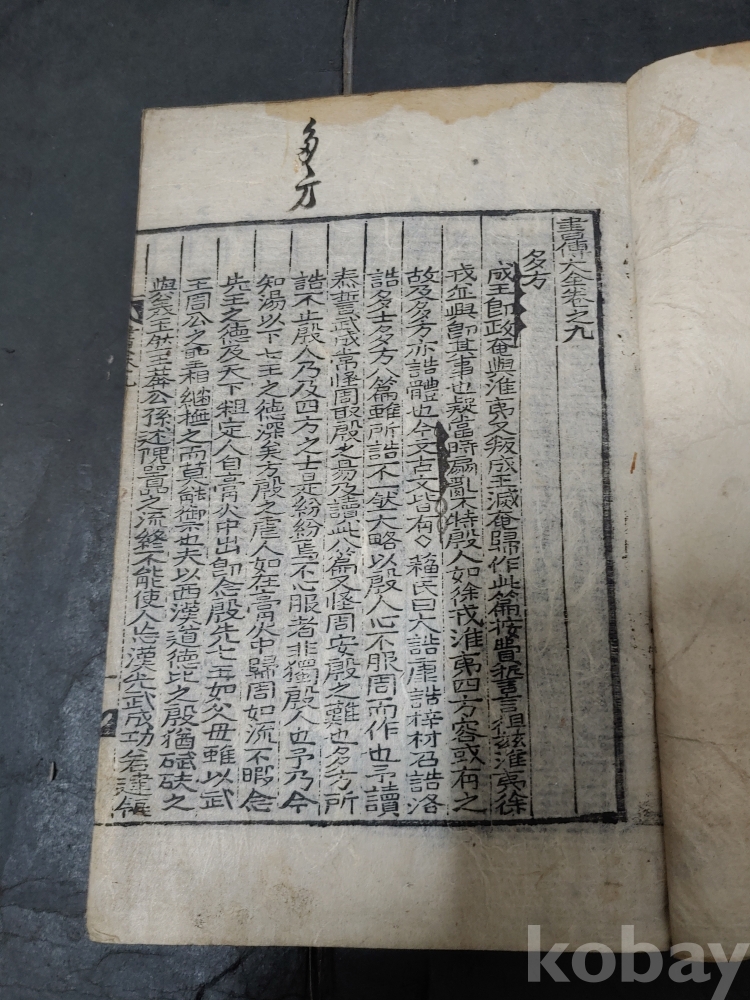 多方
書傳大全卷之九
多方
成王卽政奄與淮夷又叛成王滅奄歸作此篇按費誓言徂玆淮夷徐
戎並興卽其事也疑當時扇亂不特殷人如徐戎淮夷四方容或有之
故及多方亦誥體也今文古文皆有○蘇氏曰大誥康誥梓材召誥洛
誥多士多方八篇雖所誥不一然大略以殷人心不服周而作也予讀
泰誓武成常怪周取殷之易及讀此八篇又怪周安殷之難也多方所
誥不止殷人乃及四方之士是紛紛焉不心服者非獨殷人也予乃今
知湯以下七王之德深矣方殷之虐人如在膏火中歸周如流不暇念
先王之德及天下粗定人自膏火中出卽念殷先七王如父母雖以武
王周公之聖相繼撫之而莫能禦也夫以西漢道德比之殷猶碔砆之
與美玉然王莽公孫述隗囂之流終不能使人忘漢光武成功若建瓴
kobay